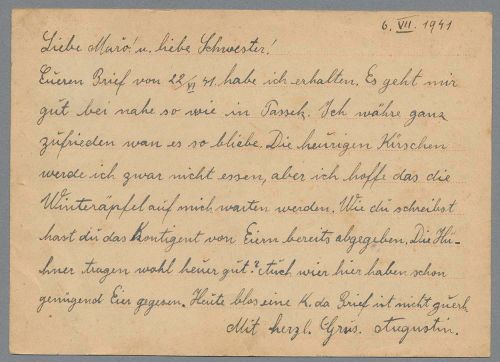 6. VII. 1941
Liebe Maro! u. liebe Schwester!
Eueren Brief von 22/VI 41. habe ich erhalten. Es geht mir
gut bei nahe so wie in Tassek. Ich währe ganz
zufrieden wan es so bliebe. Die heurigen Kirschen
werde ich zwar nicht essen, aber ich hoffe das die
Winteräpfel auf mich warten werden. Wie du schreibst
hast du das Kontigent von Eiern bereits abgegeben. Die Hü-
hner tragen wohl heuer gut? Auch wier hier haben schon
genügend Eier gegesen. Heute blos eine K. da Brief ist nicht
Mit herzl. Grus. Augustin.